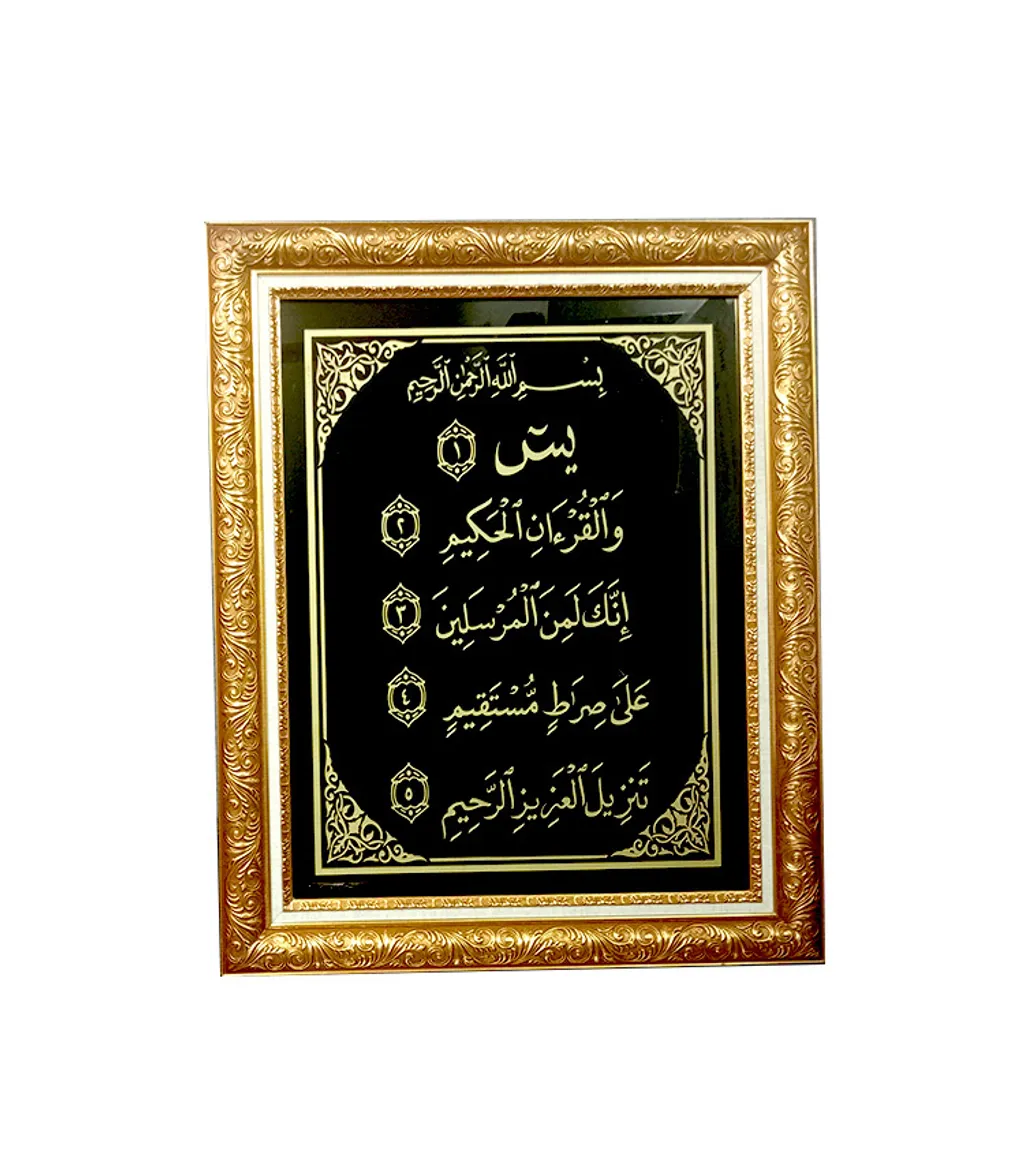 بِسْمِ ٱللَّهِ ٱلرَّحْمَٰنِ ٱلرَّحِيمِ
يسٓ ١
وَٱلْقُرْءَانِ ٱلْحَكِيمِ ٢
إِنَّكَ لَمِنَ ٱلْمُرْسَلِينَ ٣
عَلَىٰ صِرَٰطٍ مُّسْتَقِيمٍ ٤
تَنزِيلَ ٱلْعَزِيزِ ٱلرَّحِيمِ ٥